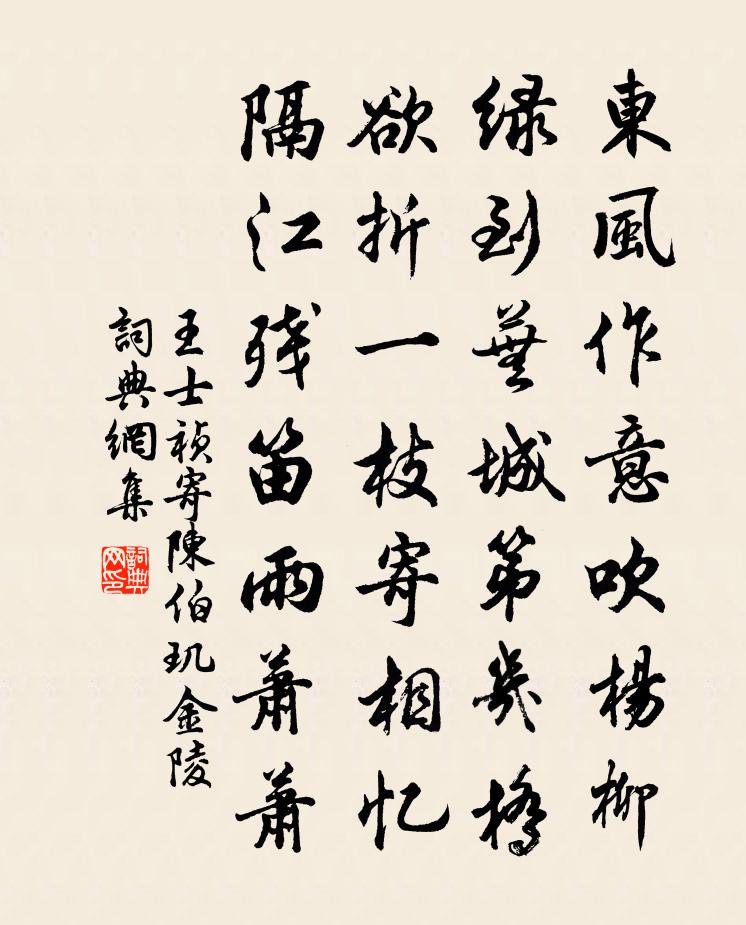 東風作意吹楊柳
緑到蕪城第幾橋
欲折一枝寄相忆
隔江残笛雨蕭蕭
王士禎寄陳伯玑金陵
詞典網集
詞典网印